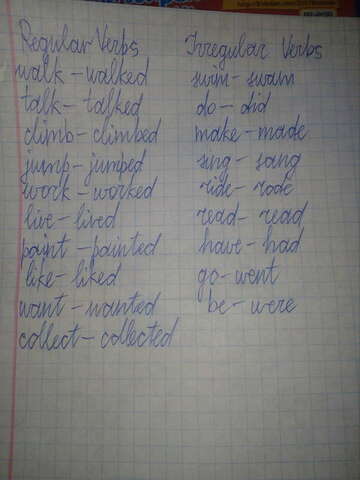 Regular Verbs
walk - walked
talk - talked
climb - climbed
jump - jumped
work - worked
live - lived
paint - painted
like - liked
want - wanted
collect - collected
Irregular Verbs
swim - swam
do - did
make - made
sing - sang
ride - rode
read - read
have - had
go - went
be - were